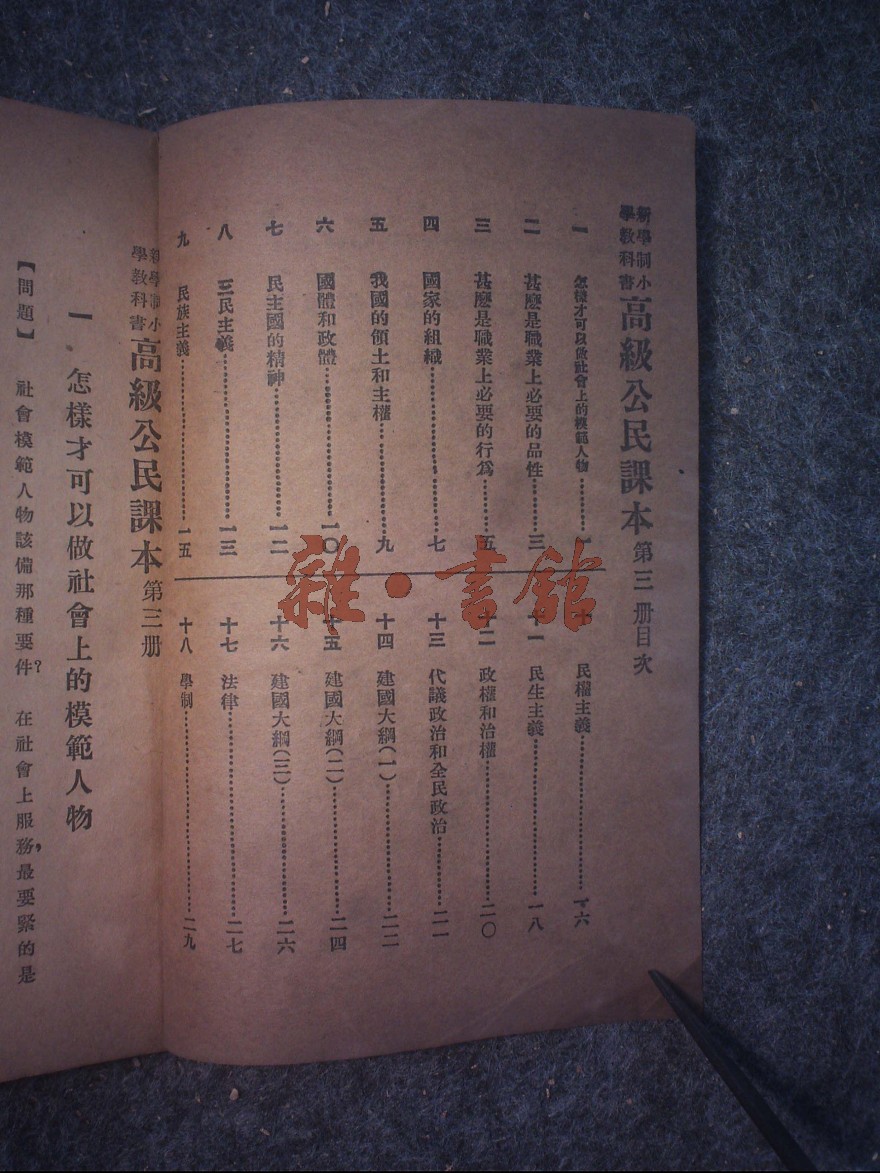 新學制小
學教科書
高級公民課本 第三册目次
一 怎樣才可以做社會上的模範人物……一
二 甚麼是職業上必要的品性……三
三 甚麼是職業上必要的行爲……五
四 國家的組織……七
五 我國的領土和主權……九
六 國體和政體……一〇
七 民主國的精神……一二
八 三民主義……一三
九 民族主義……一五
十 民權主義……一六
十一 民生主義……一八
十二 政權和治權……二〇
十三 代議政治和全民政治……二一
十四 建國大綱(一)……二二
十五 建國大綱(二)……二四
十六 建國大綱(三)……二六
十七 法律……二七
十八 學制……二九
雜·書館
新學制小
學教科書
高級公民課本 第三册
一 怎樣才可以做社會上的模範人物
【問題】 社會模範人物該備那種要件? 在社會上服務,最要緊的是